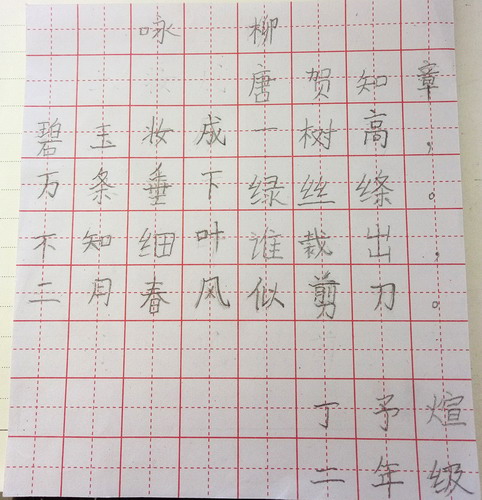 咏柳
唐 贺知章
碧玉妆成一树高，
万条垂下绿丝绦。
不知细叶谁裁出，
二月春风似剪刀。
丁予煊
二年级